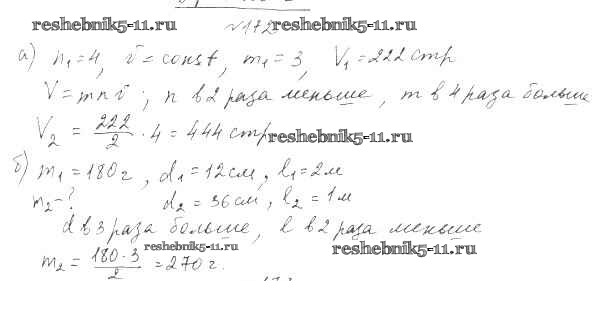 reshebnik5-11.ru №1725 reshebnik5-11.ru
а) n₁=4, v̄=const, m₁=3, V₁=222 стр
V=mnv̄; n в 2 раза меньше, m в 4 раза больше
V₂ = 222/2 · 4 = 444 стр reshebnik5-11.ru
б) m₁=180г, d₁=12см, l₁=2м
m₂-? d₂=36см, l₂=1м
d в 3 раза больше, l в 2 раза меньше
reshebnik5-11.ru reshebnik5-11.ru
m₂ = 180·3/2 = 270 г.